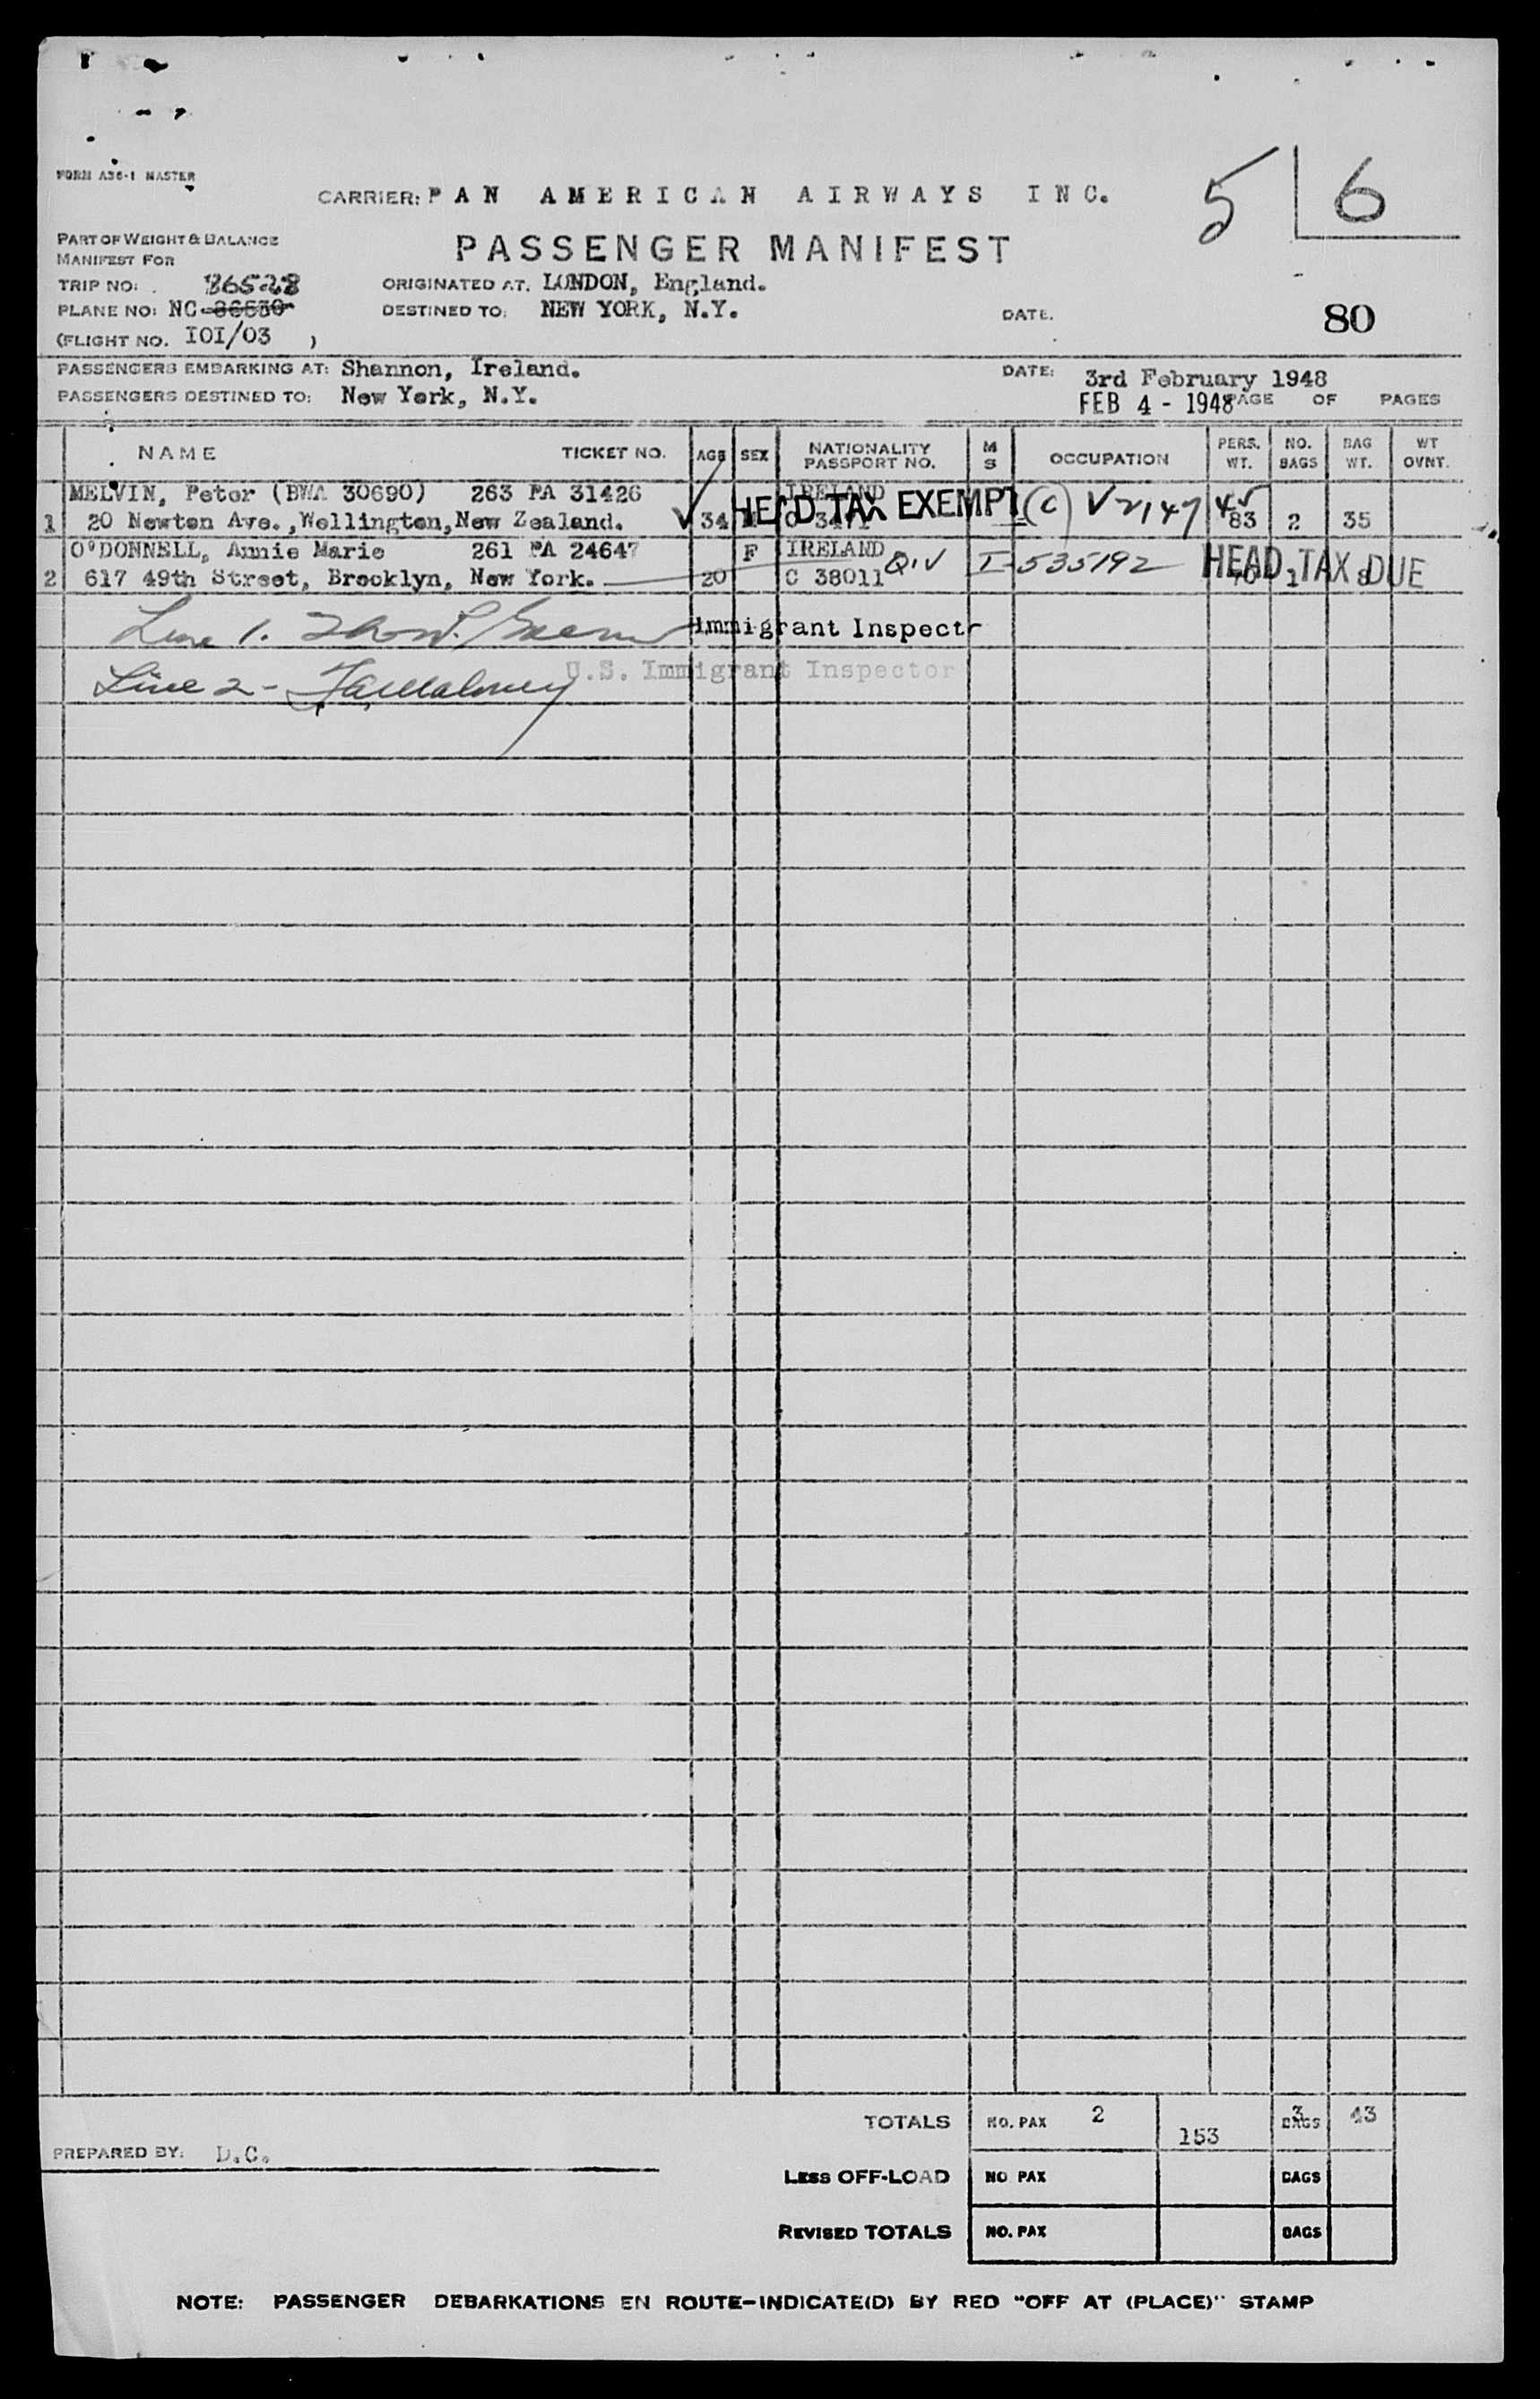 FORM A36-1 MASTER
CARRIER: PAN AMERICAN AIRWAYS INC.
5 6
PART OF WEIGHT & BALANCE
MANIFEST FOR
PASSENGER MANIFEST
TRIP NO: 86528
ORIGINATED AT. LONDON, England.
PLANE NO: NC-86530
DESTINED TO: NEW YORK, N.Y.
DATE.
80
(FLIGHT NO. IOI/03 )
PASSENGERS EMBARKING AT: Shannon, Ireland.
DATE: 3rd February 1948
PASSENGERS DESTINED TO: New York, N.Y.
FEB 4 - 1948 PAGE OF PAGES
NAME TICKET NO. AGE SEX NATIONALITY PASSPORT NO. M S OCCUPATION PERS. WT. NO. BAGS BAG WT. WT OVNT.
MELVIN, Peter (BWA 30690) 263 PA 31426 IRELAND
HEAD TAX EXEMPT (C) V 2147 45
1 20 Newton Ave., Wellington, New Zealand. 34 M 83 2 35
O'DONNELL, Annie Marie 261 PA 24647 F IRELAND
Q.I.V I-535192 HEAD TAX DUE
2 617 49th Street, Brooklyn, New York. 20 C 38011 70 1 8
Line 1. Immigrant Inspectr
U.S. Immigrant Inspector
Line 2-
TOTALS NO. PAX 2 153 3 BAGS 43
PREPARED BY: D.C.
LESS OFF-LOAD NO PAX BAGS
REVISED TOTALS NO. PAX BAGS
NOTE: PASSENGER DEBARKATIONS EN ROUTE-INDICATE(D) BY RED "OFF AT (PLACE)" STAMP